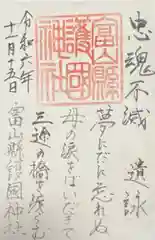 忠魂不滅
遺詠
夢にだに忘れぬ
母の涙をばいだきて
三途の橋を渡らむ
富山縣護國神社
富山縣護國神社
令和六年
十一月十五日